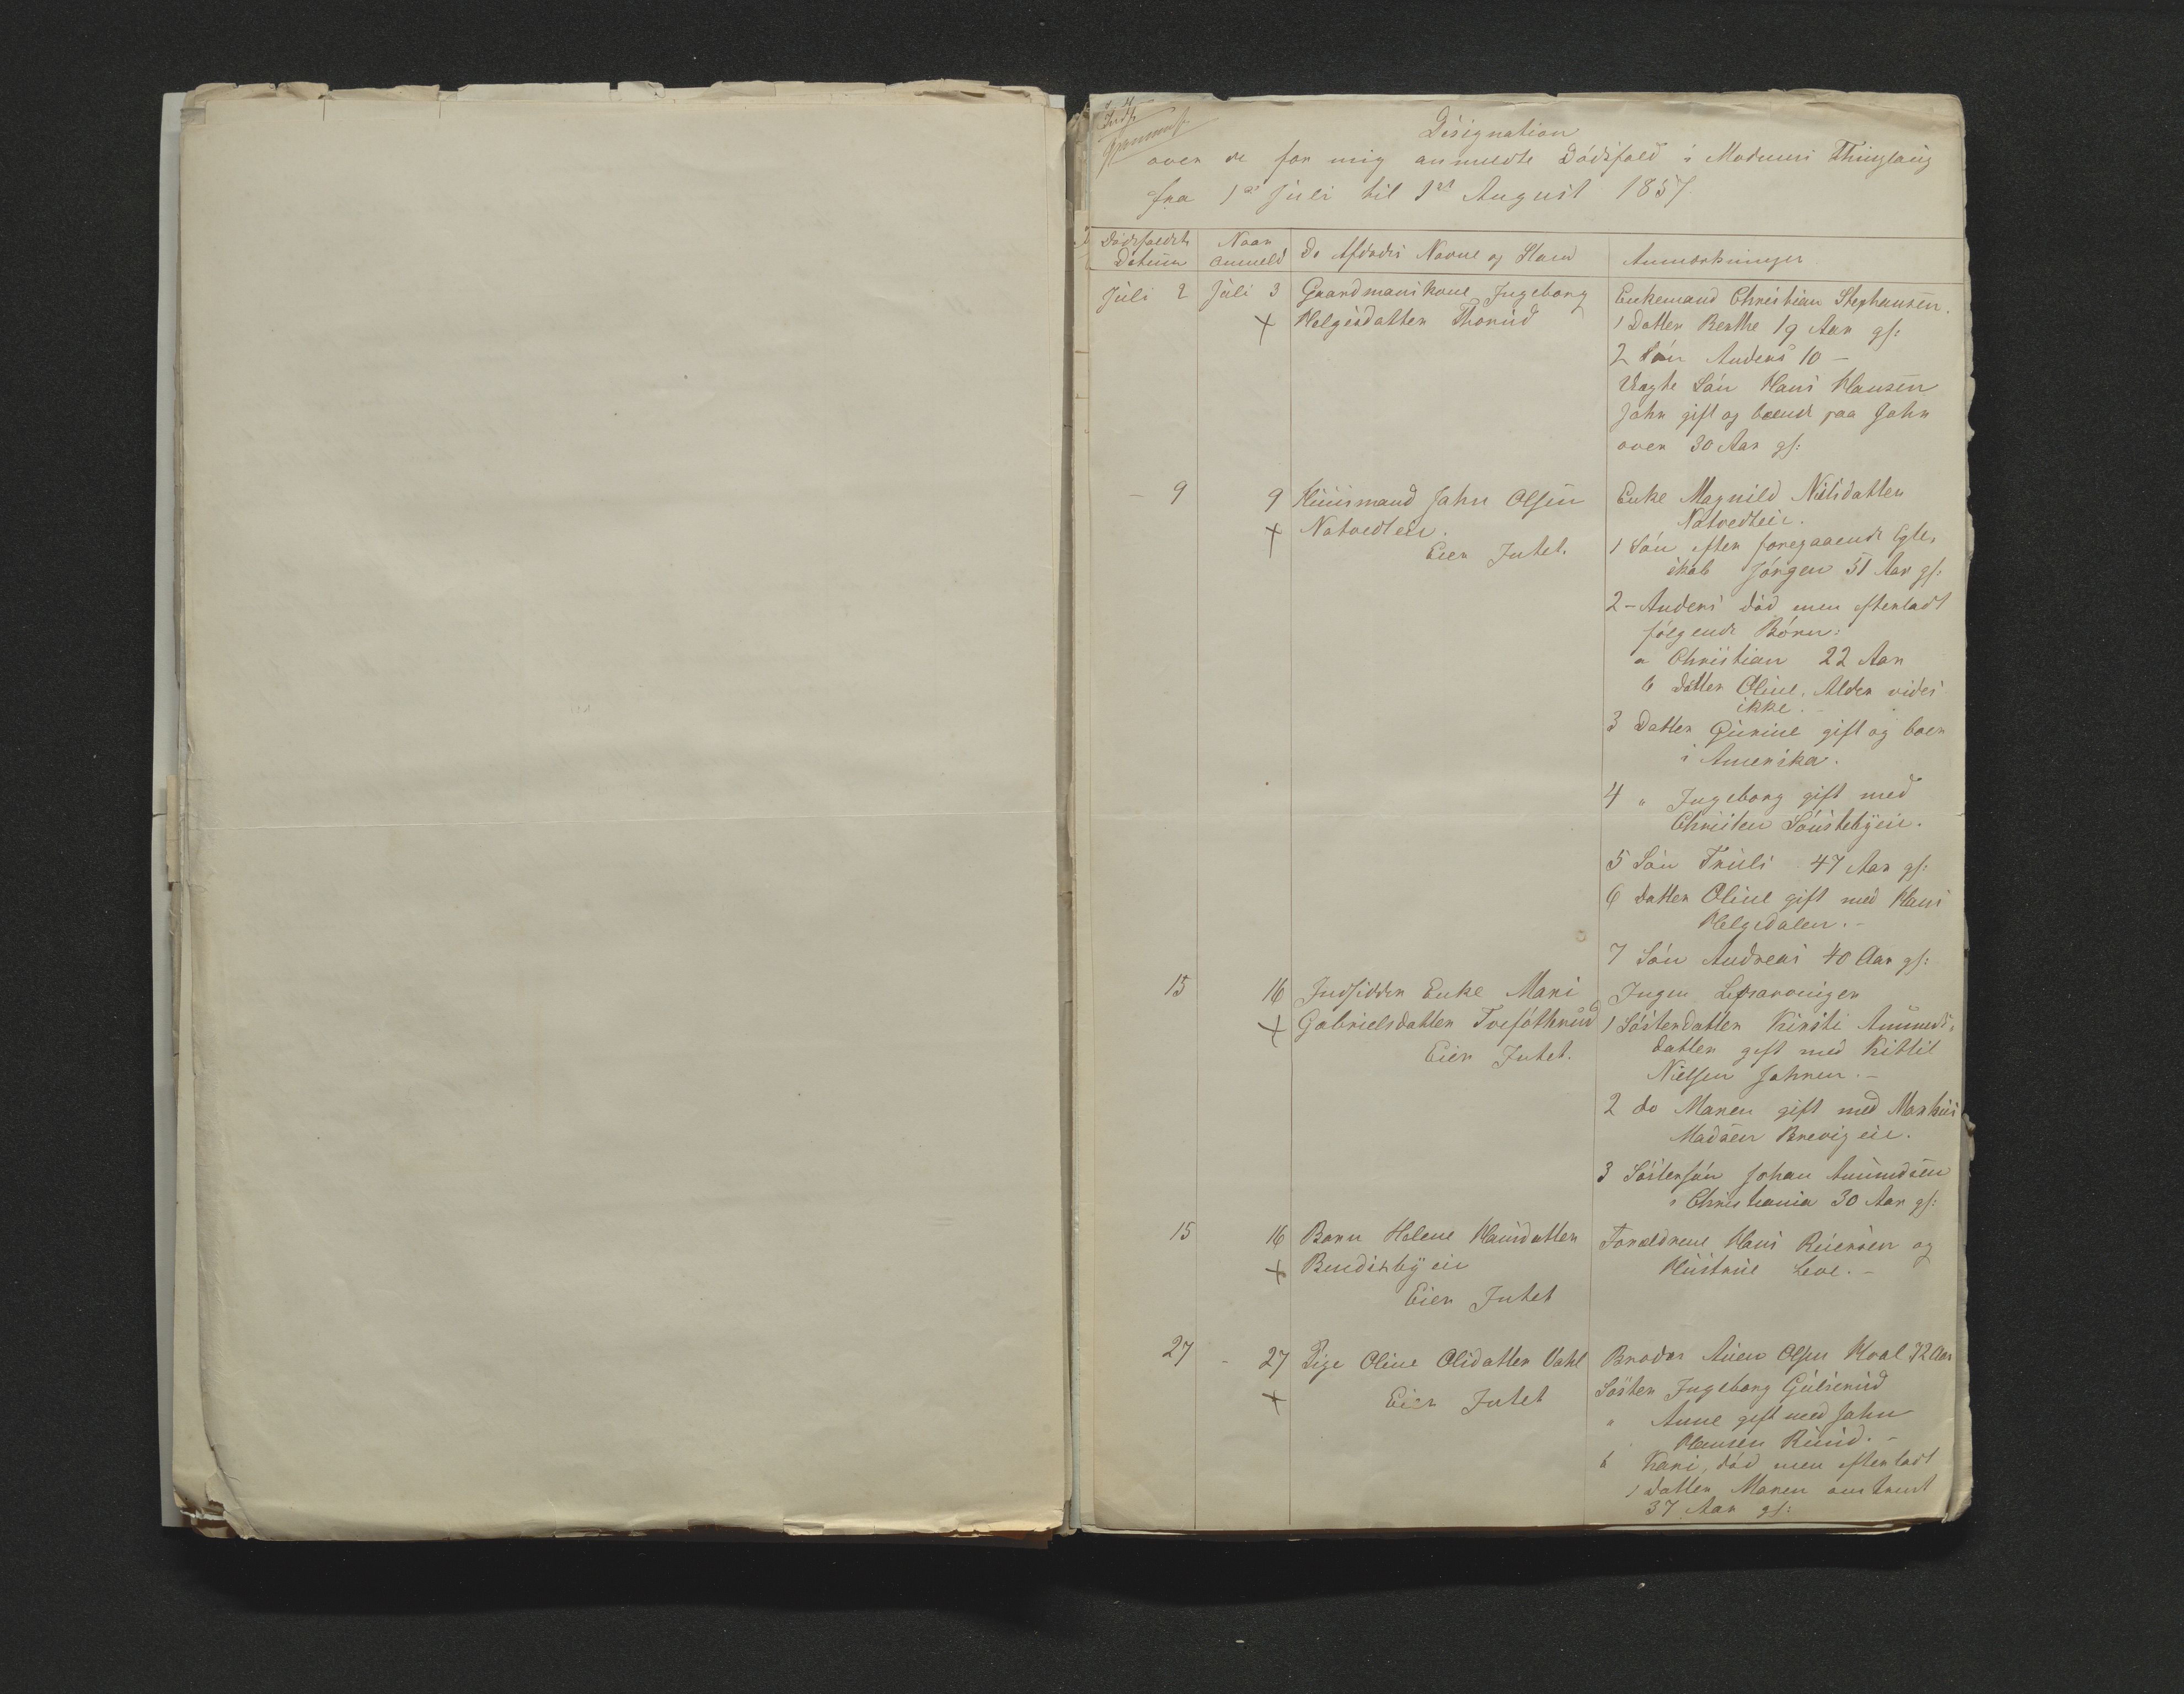 Designation
over de for mig anmeldte Dödsfald i Modums Thinglaug
fra 1ste Juli til 1st August 1857.
Dödsfaldets Datum
Naar anmeldt
De Afdödes Navne og Stand
Anmærkninger
Juli 2 Juli 3 Gaardmandskone Ingeborg
Helgesdatter Thorud
Enkemand Christian Stephansen.
1 Datter Berthe 19 Aar gl:
2 Sön Anders 10 –
Uægte Sön Hans Hansen
John gift og boende paa John
over 30 Aar gl:
– 9 9 Huusmand John Olsen
Natvedteie.
Eier Intet.
Enke Magnild Nielsdatter
Natvedteie.
1 Sön efter foregaaende Egte-
skab Jörgen 51 Aar gl:
2 – Anders död men efterladt
fölgende Börn:
a Christian 22 Aar
b Datter Oline, Alder vides
ikke. –
3 Datter Gurine gift og boer
i Amerika.
4 " Ingeborg gift med
Christen Sönstebyeie.
5 Sön Truls 47 Aar gl:
6 Datter Oline gift med Hans
Helgedalen. –
7 Sön Andreas 40 Aar gl:
15 16 Indsidder Enke Mari
Gabrielsdatter
Eier Intet.
Ingen Livsarvinger
1 Sösterdatter Kirsti Amunds-
datter gift med Kittil
Nielsen Johnen. –
2 do Maren gift med Markus
Madsen Brevigeie.
3 Söstersön Johan Amundsen
i Christiania 30 Aar gl:
15 16 Barn Helene Hansdatter
Bendixbyeie
Eier Intet
Forældrene Hans Reiersen og
Hustrue Leve. –
27 – 27 Pige Oline Olsdatter Vahl
Eier Intet
Broder Olsen 72 Aar
Söster Ingeborg Gulsrud
" Anne gift med John
Hansen Ruud. –
b Kari, död men efterladt
1 Datter Maren omtrent
37 Aar gl: